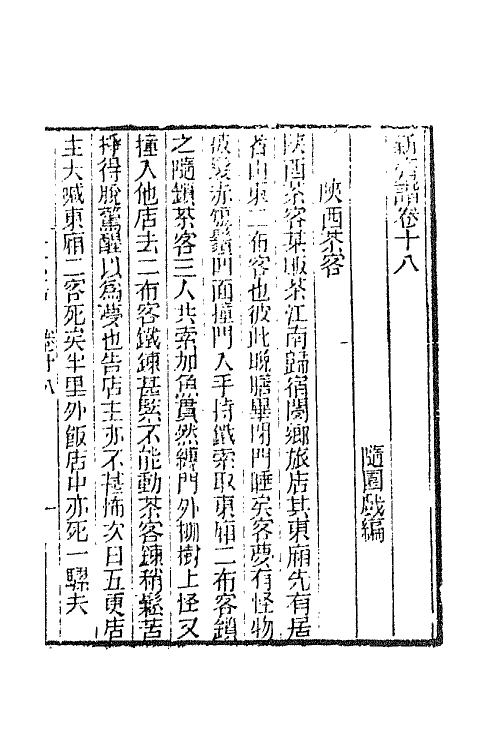 新齊諧卷十八
隨園戲編
陜西茶客
陜西茶客某販茶江南歸宿閿鄉旅店其東廂先有居
者山東二布客也彼此晚膳畢閉門睡矣客夢有怪物
披髮赤鬚鬍凹面撞門入手持鐵索取東廂二布客鎖
之隨鎖茶客三人共索加魚貫然縛門外柳樹上怪又
撞入他店去二布客鐵鍊甚緊不能動茶客鍊稍鬆苦
掙得脫驚醒以為夢也告店主亦不甚怖次日五更店
主大喊東廂二客死矣半里外飯店中亦死一騾夫
卷十八
一